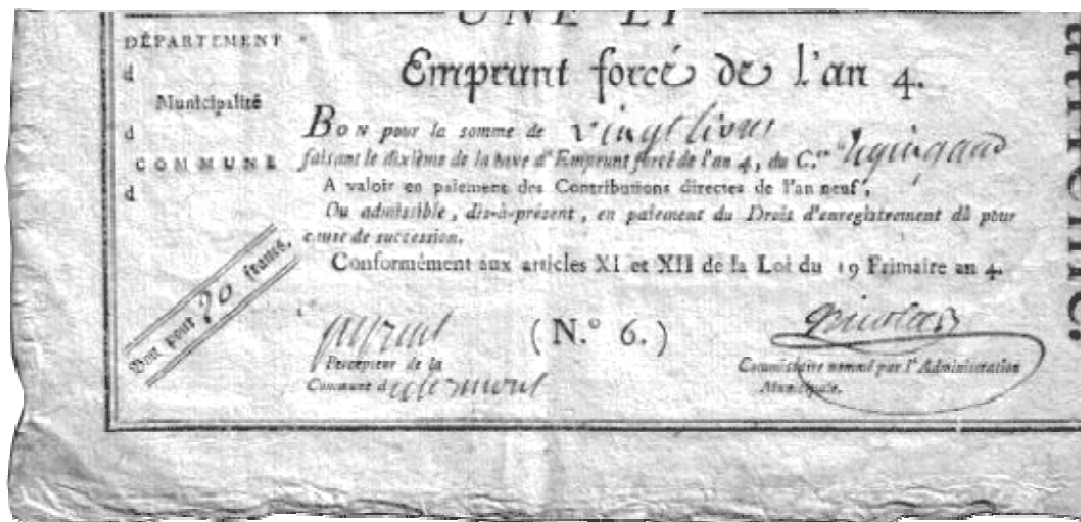 UNE ET
DÉPARTEMENT
d
Municipalité
d
COMMUNE
d
Emprunt forcé de l'an 4.
BON pour la somme de vingt livres
faisant le dixième de la taxe d'Emprunt forcé de l'an 4, du C.en
A valoir en paiement des Contributions directes de l'an neuf,
Ou admissible, dès-à-présent, en paiement du Droit d'enregistrement dû pour
cause de succession.
Conformément aux articles XI et XII de la Loi du 19 Frimaire an 4.
Bon pour 20 francs.
(N.° 6.)
Percepteur de la
Commune d
Commissaire nommé par l'Administration
Municipale.